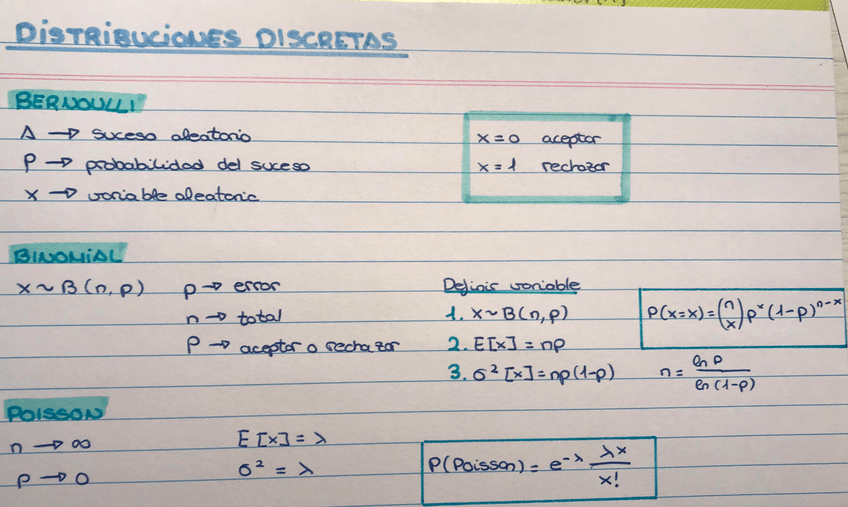 DISTRIBUCIONES DISCRETAS
BERNOULLI
A → suceso aleatorio
P → probabilidad del suceso
x → variable aleatoria
x=0 aceptar
x=1 rechazar
BINOMIAL
x ~ B(n,p)
p → error
n → total
P → aceptar o rechazar
Definir variable
1. x ~ B(n,p)
2. E[x] = np
3. σ² [x] = np(1-p)
P(x=x) = (n x) pˣ (1-p)ⁿ⁻ˣ
n = ln P / ln (1-p)
POISSON
n → ∞
p → 0
E[x] = λ
σ² = λ
P(Poisson) = e^-λ λx / x!